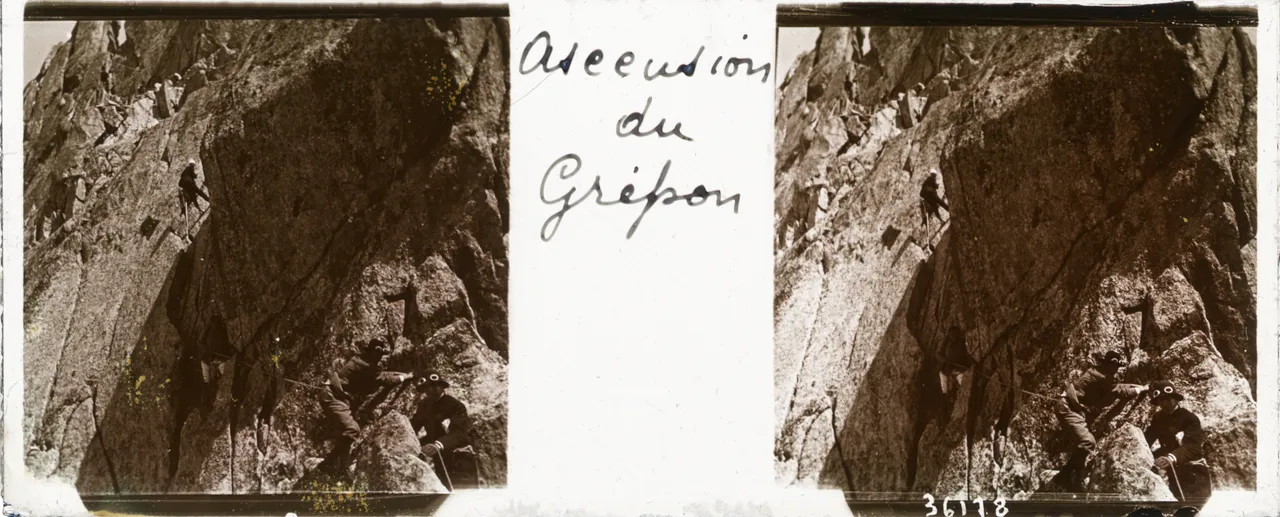 Ascension
du
Grépon
36178